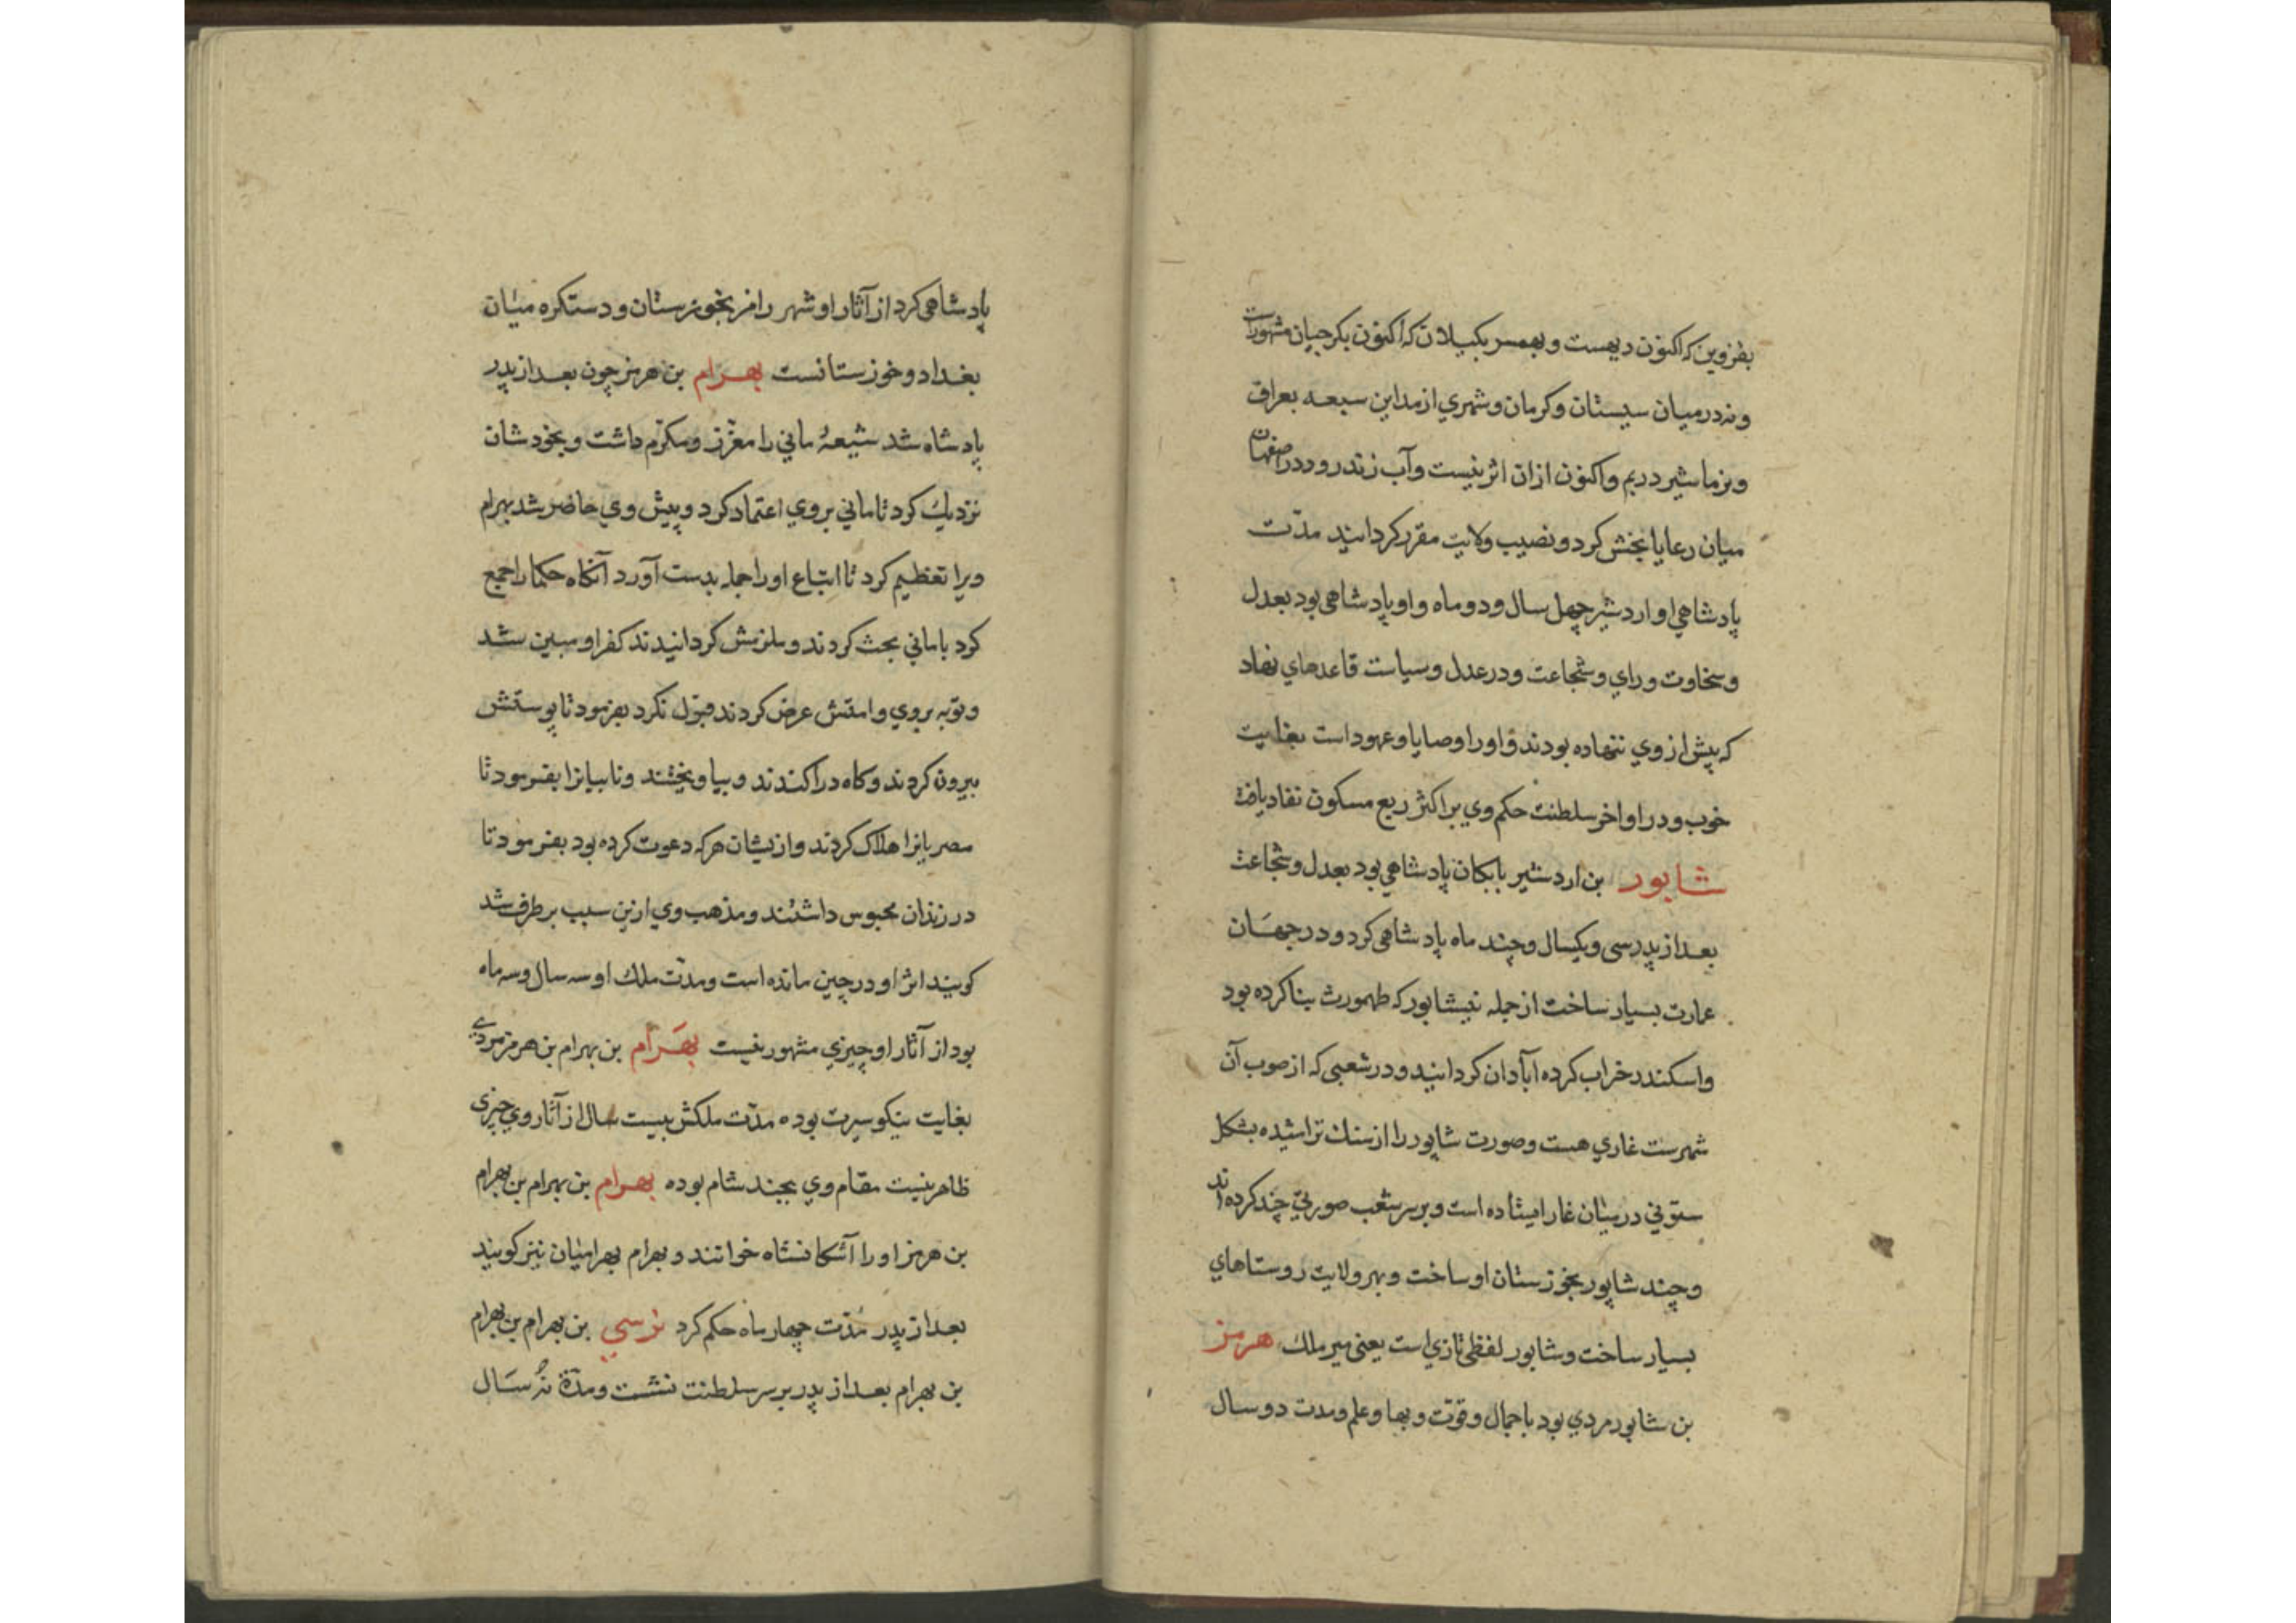 بقزوین که اکنون دیهست و بهمسر بکیلان که اکنون بکرجیان مشهورات
ونه در میان سیستان وکرمان وشهري از مداین سبعه بعراق
وبزماشیر دریم واکنون ازان اثر نیست وآب زنده رود در اصفهان
میان رعایا بخش کرد و نصیب ولایت مقرر کردانید مدّت
پادشاهي او اردشیر چهل سال ودو ماه واو پادشاهي بود بعدل
وسخاوت وراي وشجاعت ودر عدل وسیاست قاعدهاي نهاد
که پیش از وي ننهاده بودند واورا وصایا وعهود است بغایت
خوب ودر اواخر سلطنت حکم وي بر اکثر ربع مسکون نفاد یافت
شاپور بن اردشیر بابکان پادشاهي بود بعدل وشجاعت
بعد از پدر سی ویکسال وچند ماه پادشاهی کرد ودر جهان
عمارت بسیار ساخت از جمله نیشابور که طهمورث بنا کرده بود
واسکندر خراب کرده آبادان کردانید ودر شعبی که از صوب آن
شهرست غاري هست وصورت شاپور را از سنک تراشیده بشکل
ستوني در میان غار ایستاده است وبر سر شعب صورتي چند کرده اند
وچند شاپور بخوزستان او ساخت وبهر ولایت روستاهاي
بسیار ساخت وشاپور لفظی تازي است یعنی میر ملك هرمز
بن شاپور مردي بود با جمال وقوّت وبها وعلم ومدت دو سال
پادشاهی کرد از آثار او شهر رامز بخوزستان ودستکره میان
بغداد وخوزستانست بهرام بن هرمز چون بعد از پدر
پادشاه شد شیعهٔ ماني را معزّز ومکرّم داشت وبخودشان
نزدیك کرد تا ماني بروي اعتماد کرد وپیش وي حاضر شد بهرام
ویرا تعظیم کرد تا اتباع اورا جمله بدست آورد آنکاه حکما را جمع
کرد با ماني بحث کردند وملزمش کردانیدند کفر او مبین شد
وتوبه بروي وامتش عرض کردند قبول نکرد بفرمود تا پوستش
بیرون کردند وکاه در آکندند وبیاویختند ونابیانرا بفرمود تا
مصریانرا هلاک کردند وازیشان هرکه دعوت کرده بود بفرمود تا
در زندان محبوس داشتند ومذهب وي ازین سبب بر طرف شد
کویند اثر او در چین مانده است ومدّت ملك او سه سال وسه ماه
بود از آثار او چیزي مشهور نیست بهرام بن بهرام بن هرمز مردي
بغایت نیکو سیرت بوده مدّت ملکش بیست سال از آثار وي چیزی
ظاهر نیست مقام وي بجند شام بوده بهرام بن بهرام بن بهرام
بن هرمز اورا آشکانشاه خوانند وبهرام بهرامیان نیز کویند
بعد از پدر مُدّت چهار ماه حکم کرد نرسي بن بهرام بن بهرام
بن بهرام بعد از پدر بر سر سلطنت نشست ومدّة نُه سال